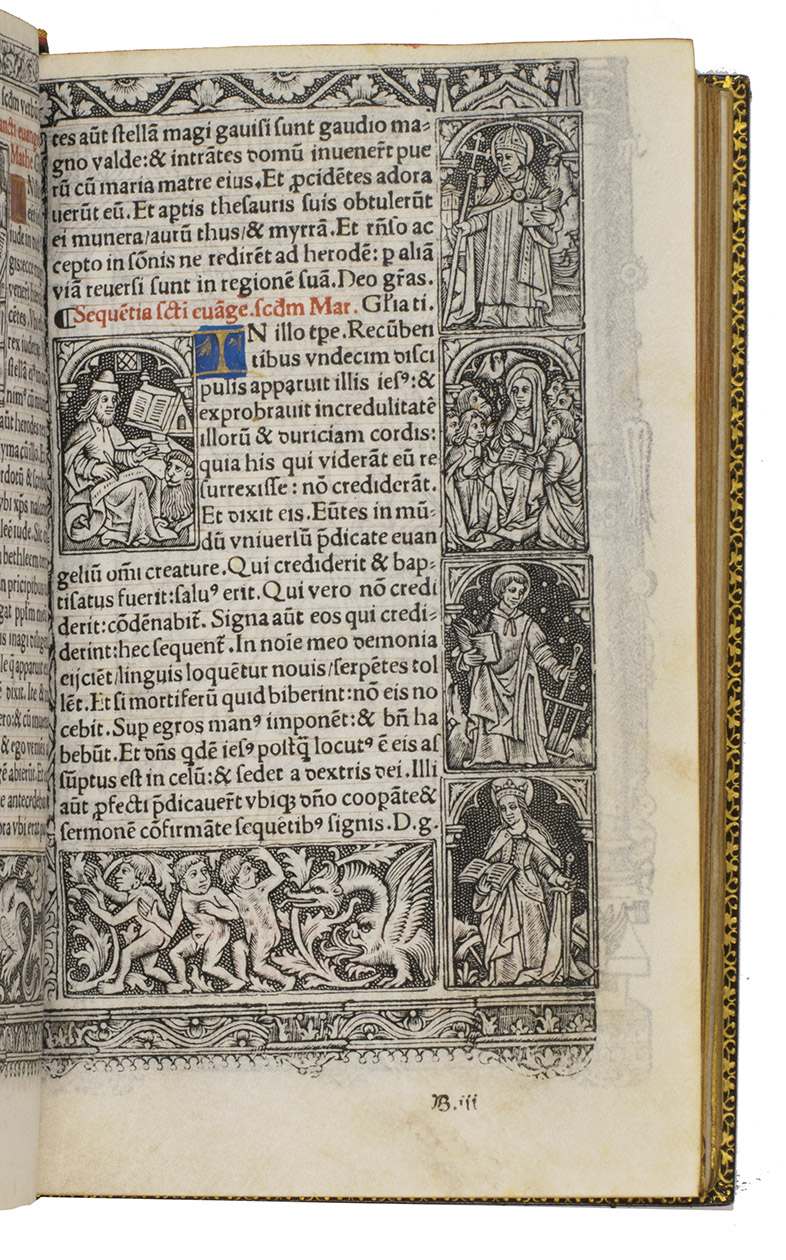 tes aūt stellā magi gauisi sunt gaudio ma-
gno valde: & intrātes domū inuener̄t pue
rū cū maria matre eius. Et ꝓcidētes adora
uerūt eū. Et aꝑtis thesauris suis obtulerūt
ei munera/aurū thus/& myrrā. Et rn̄so ac
cepto in sōnis ne redirēt ad herodē: ꝑ aliā
viā reuersi sunt in regionē suā. Deo gr̄as.
¶Sequētia sc̄ti euāge. scd̄m Mar. Gl̄ia ti.
IN illo tp̄e. Recūben
tibus vndecim disci
pulis apparuit illis iesꝰ: &
exprobrauit incredulitatē
illorū & duriciam cordis:
quia his qui viderāt eū re
surrexisse: nō crediderāt.
Et dixit eis. Eūtes in mū-
dū vniuersū p̄dicate euan
geliū om̄i creature. Qui crediderit & bap-
tisatus fuerit: saluꝰ erit. Qui vero nō credi
derit: cōdēnabit̄. Signa aūt eos qui credi-
derint: hec sequent̄. In noīe meo demonia
eijciēt/linguis loquētur nouis/serpētes tol
lēt. Et si mortiferū quid biberint: nō eis no
cebit. Suꝑ egros manꝰ imponēt: & bn̄ ha
bebūt. Et dn̄s qdē iesꝰ postq̄ locutꝰ ē eis as
sūptus est in celū: & sedet a dextris dei. Illi
aūt ꝓfecti p̄dicauer̄t vbiqꝫ dn̄o cooꝑāte &
sermonē cōfirmāte sequētibꝰ signis. D. g.
B.iii